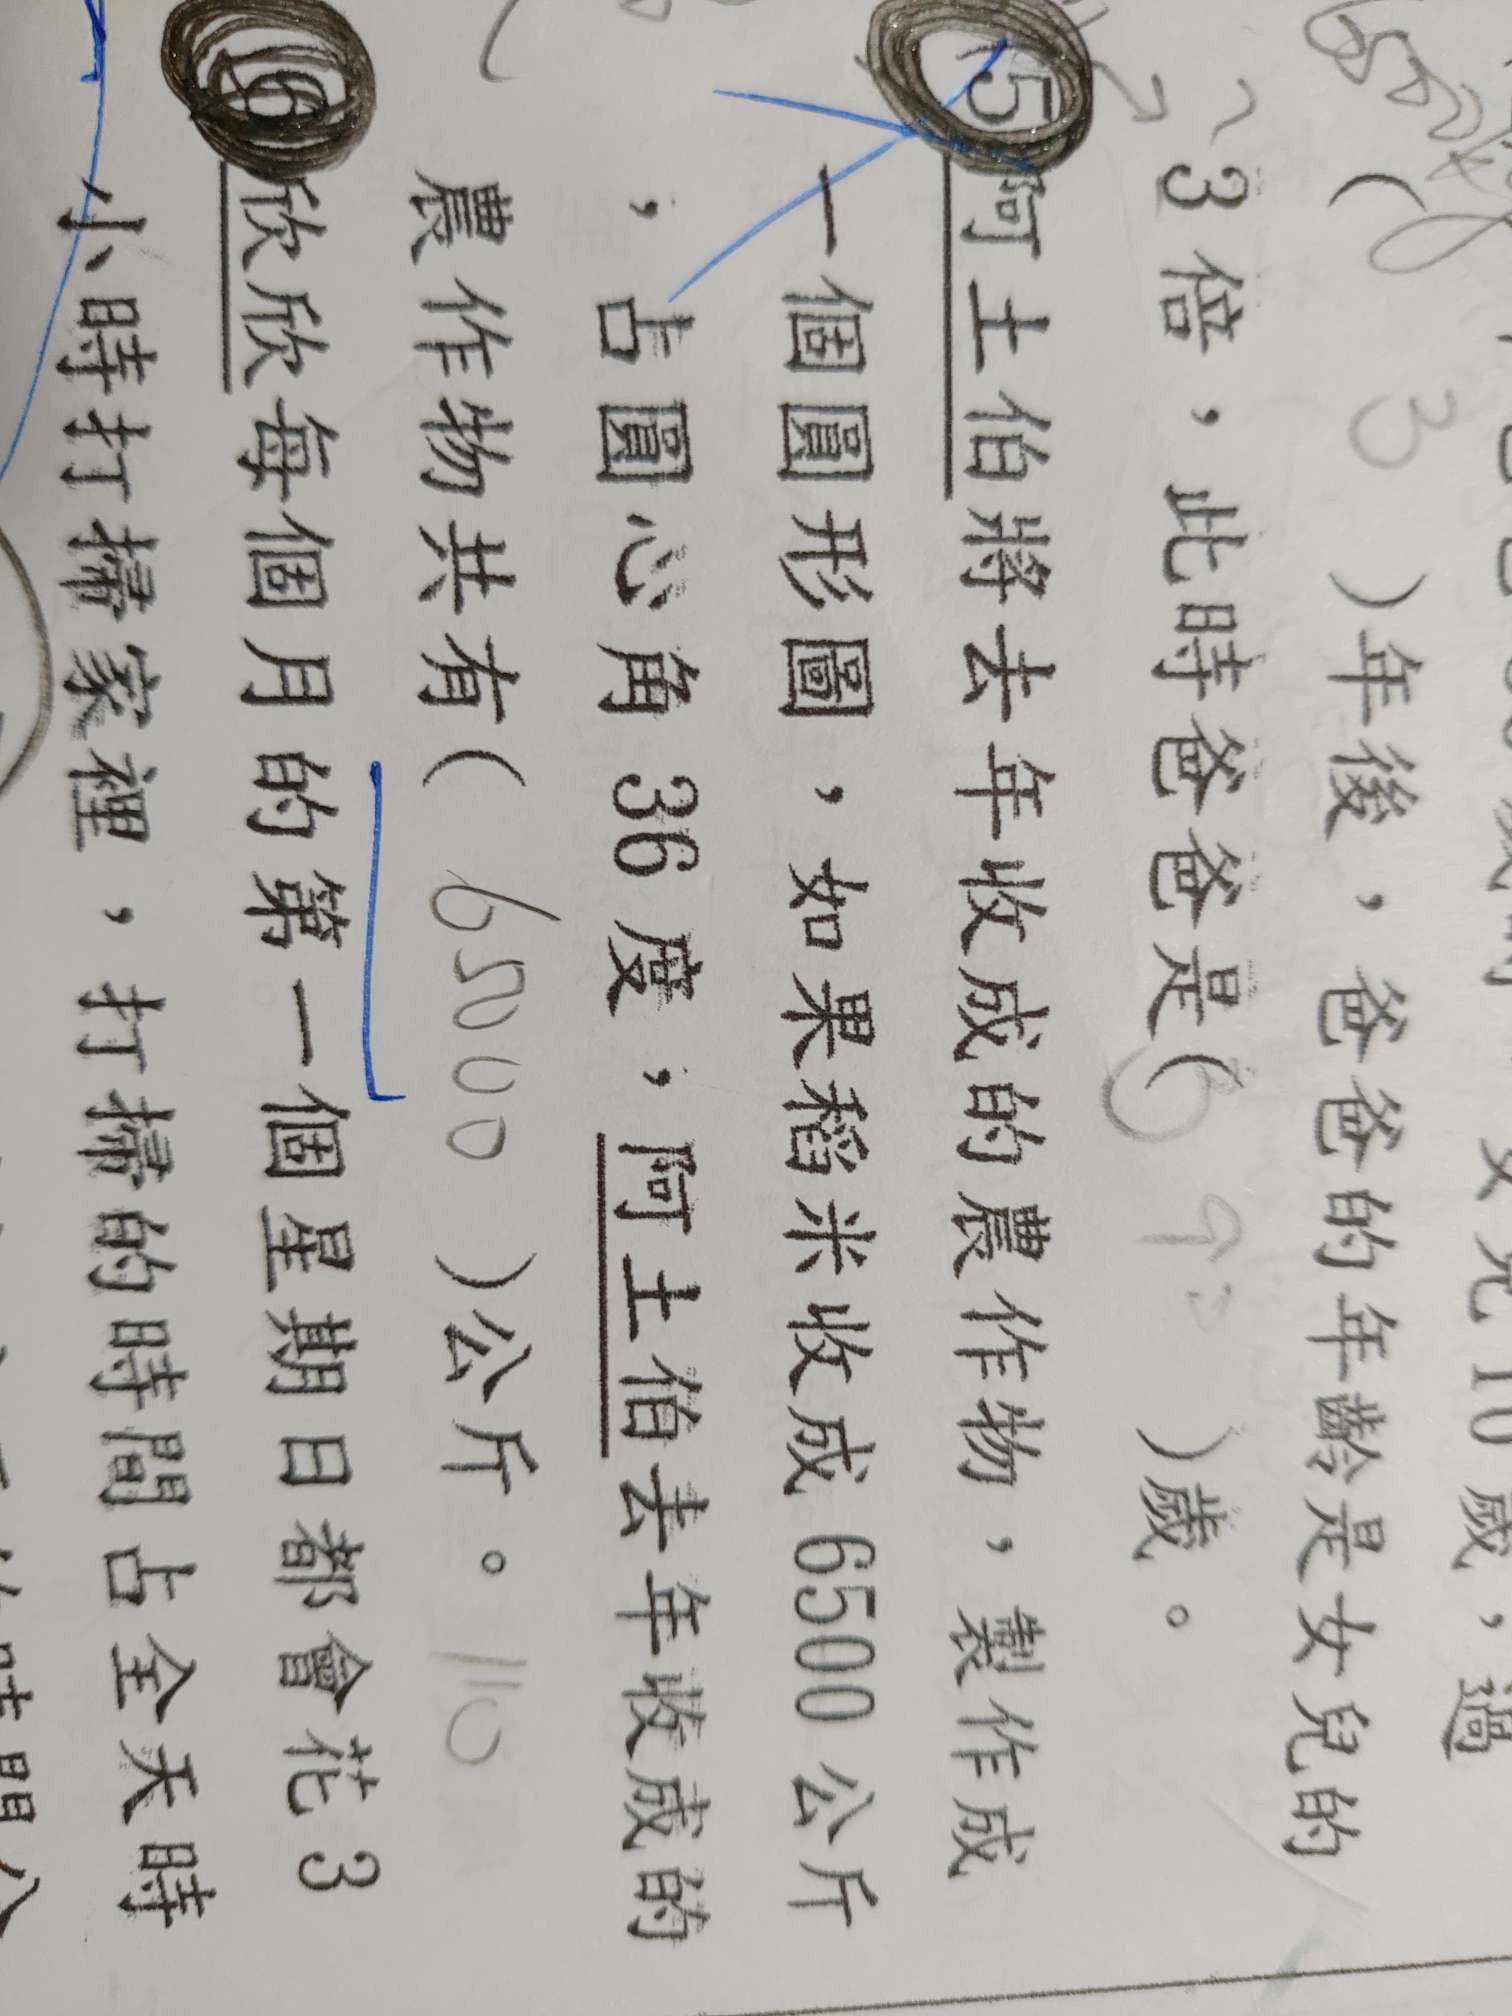 女兒10歲，過
( 3 )年後，爸爸的年齡是女兒的
3倍，此時爸爸是( )歲。
5 阿土伯將去年收成的農作物，製作成
一個圓形圖，如果稻米收成6500公斤
，占圓心角36度，阿土伯去年收成的
農作物共有( 65000 )公斤。 110
6 欣欣每個月的第一個星期日都會花3
小時打掃家裡，打掃的時間占全天時